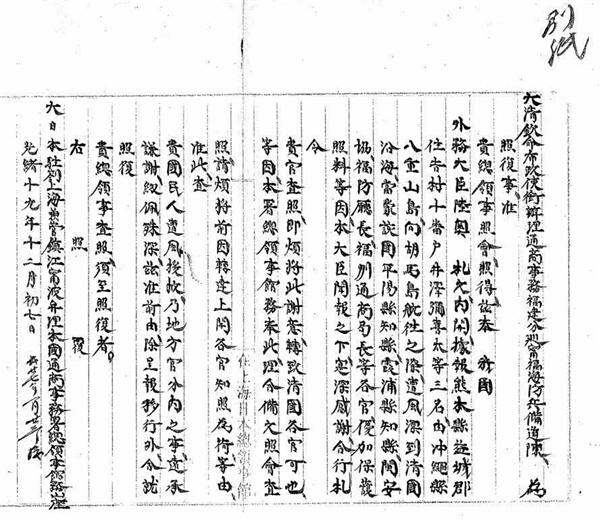 別紙
大清欽命布政使銜辦理通商事務福建分巡甯福海防兵備道陳 為
照復事准
貴總領事照會照得茲奉 我國
外務大臣陸奧 札文內開據報熊本縣益城郡
住吉村十番戶井澤彌喜太等三名由沖繩縣
八重山島向胡馬島航往之際遭風漂到清國
沿海當蒙該國平陽縣知縣霞浦縣知縣閩安
協福防廳長福州通商局長等各官優加保護
照料等因本大臣閱報之下寔深感謝合行札
令
貴官查照即煩將此謝意轉致清國各官可也
等因本署總領事館務奉此理合備文照會查
照請煩將前因轉達上開各官知照為荷等由
准此查
貴國民人遭風授救乃地方官分內之事遠承
謙謝紉佩殊深茲准前由除呈報移行外合就
照復
貴總領事查照須至照復者
右 照 復
大日本駐劄上海兼管鎮江甯波弁理本國通商事務署總領事館務山座
光緒十九年十二月初七日 廿七年一月廿三日接
在上海日本總領事館